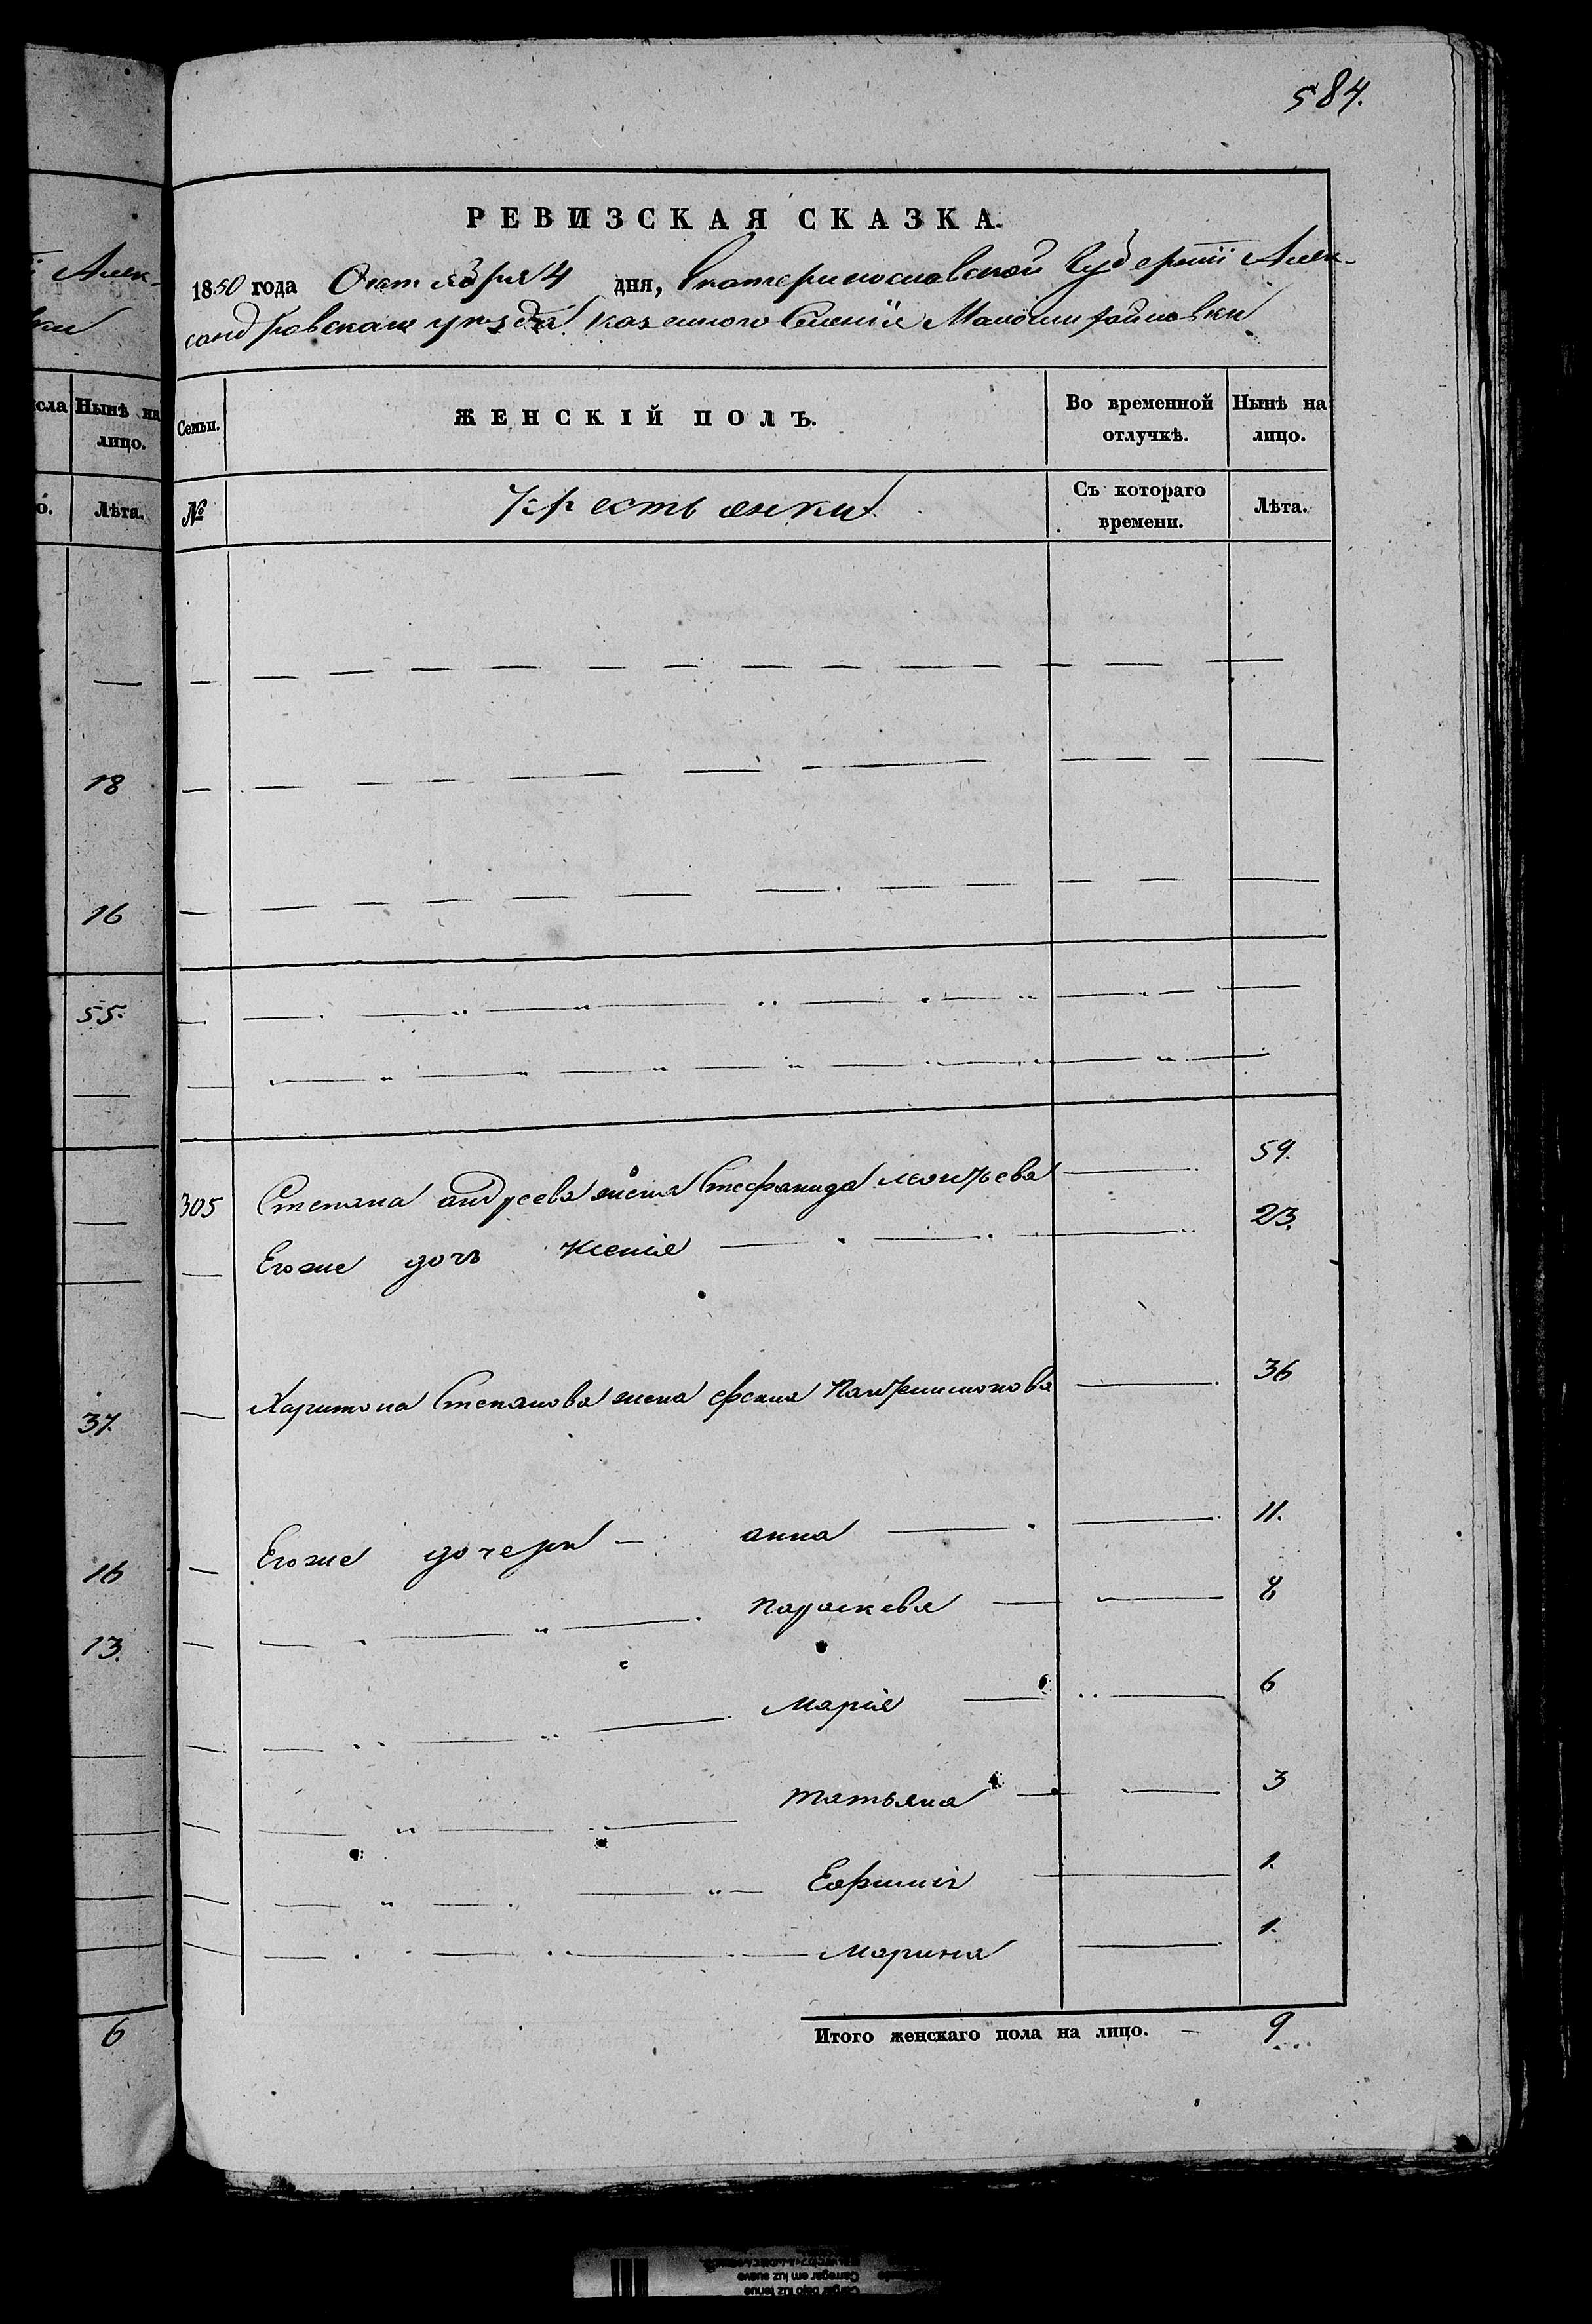 584.
РЕВИЗСКАЯ СКАЗКА.
1850 года Октября 4 дня, Екатеринославской Губернии Алек-
сандровскаго уезда казенного Селенія Маломихайловки
Семьи.
ЖЕНСКІЙ ПОЛЪ.
Во временной отлучкѣ.
Нынѣ на лицо.
№
Крестьянки
Съ котораго времени.
Лѣта.
305 Степана андреева жена Стефанида 59.
Егоже дочь Ксенія 23.
Харитона Степанова жена 36
Егоже дочери анна 11.
Параскева
Марія 6
татьяна 3
Ефимія 1.
Марина 1.
Итого женскаго пола на лицо. 9
Алек-
вки
сла
Нынѣ на лицо.
о.
Лѣта.
18
16
55.
37.
16
13.
6